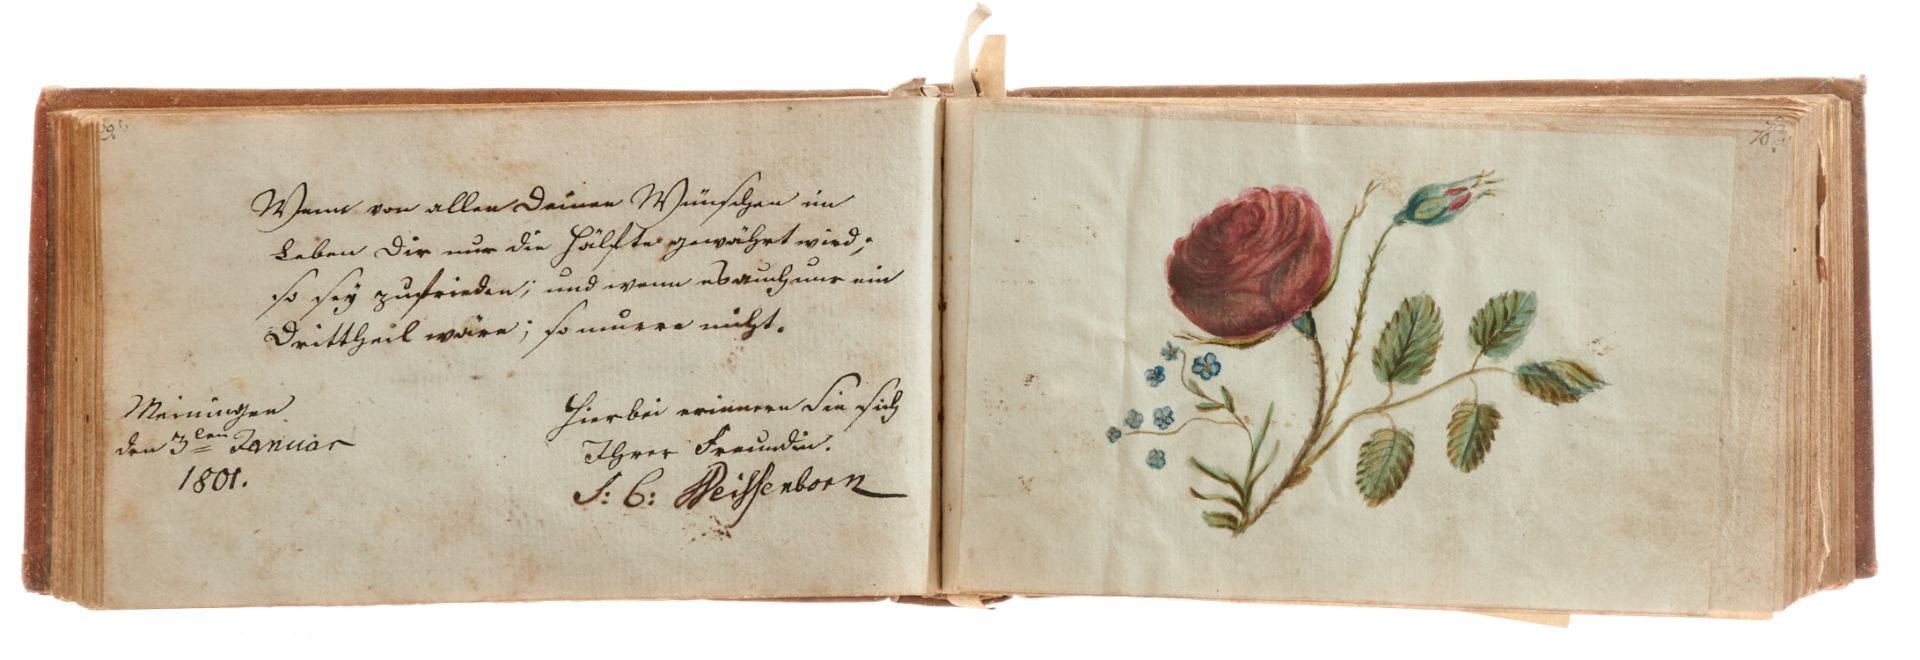 Wenn von allen Deinen Wünschen im
Leben Dir nur die Hälfte gewährt wird;
so sey zufrieden; und wenn es auch nur ein
Drittheil wäre; so murre nicht.
Meiningen
den 3ten Januar
1801.
Hierbei erinnern Sie sich
Ihrer Freundin.
J: C: Weissenborn